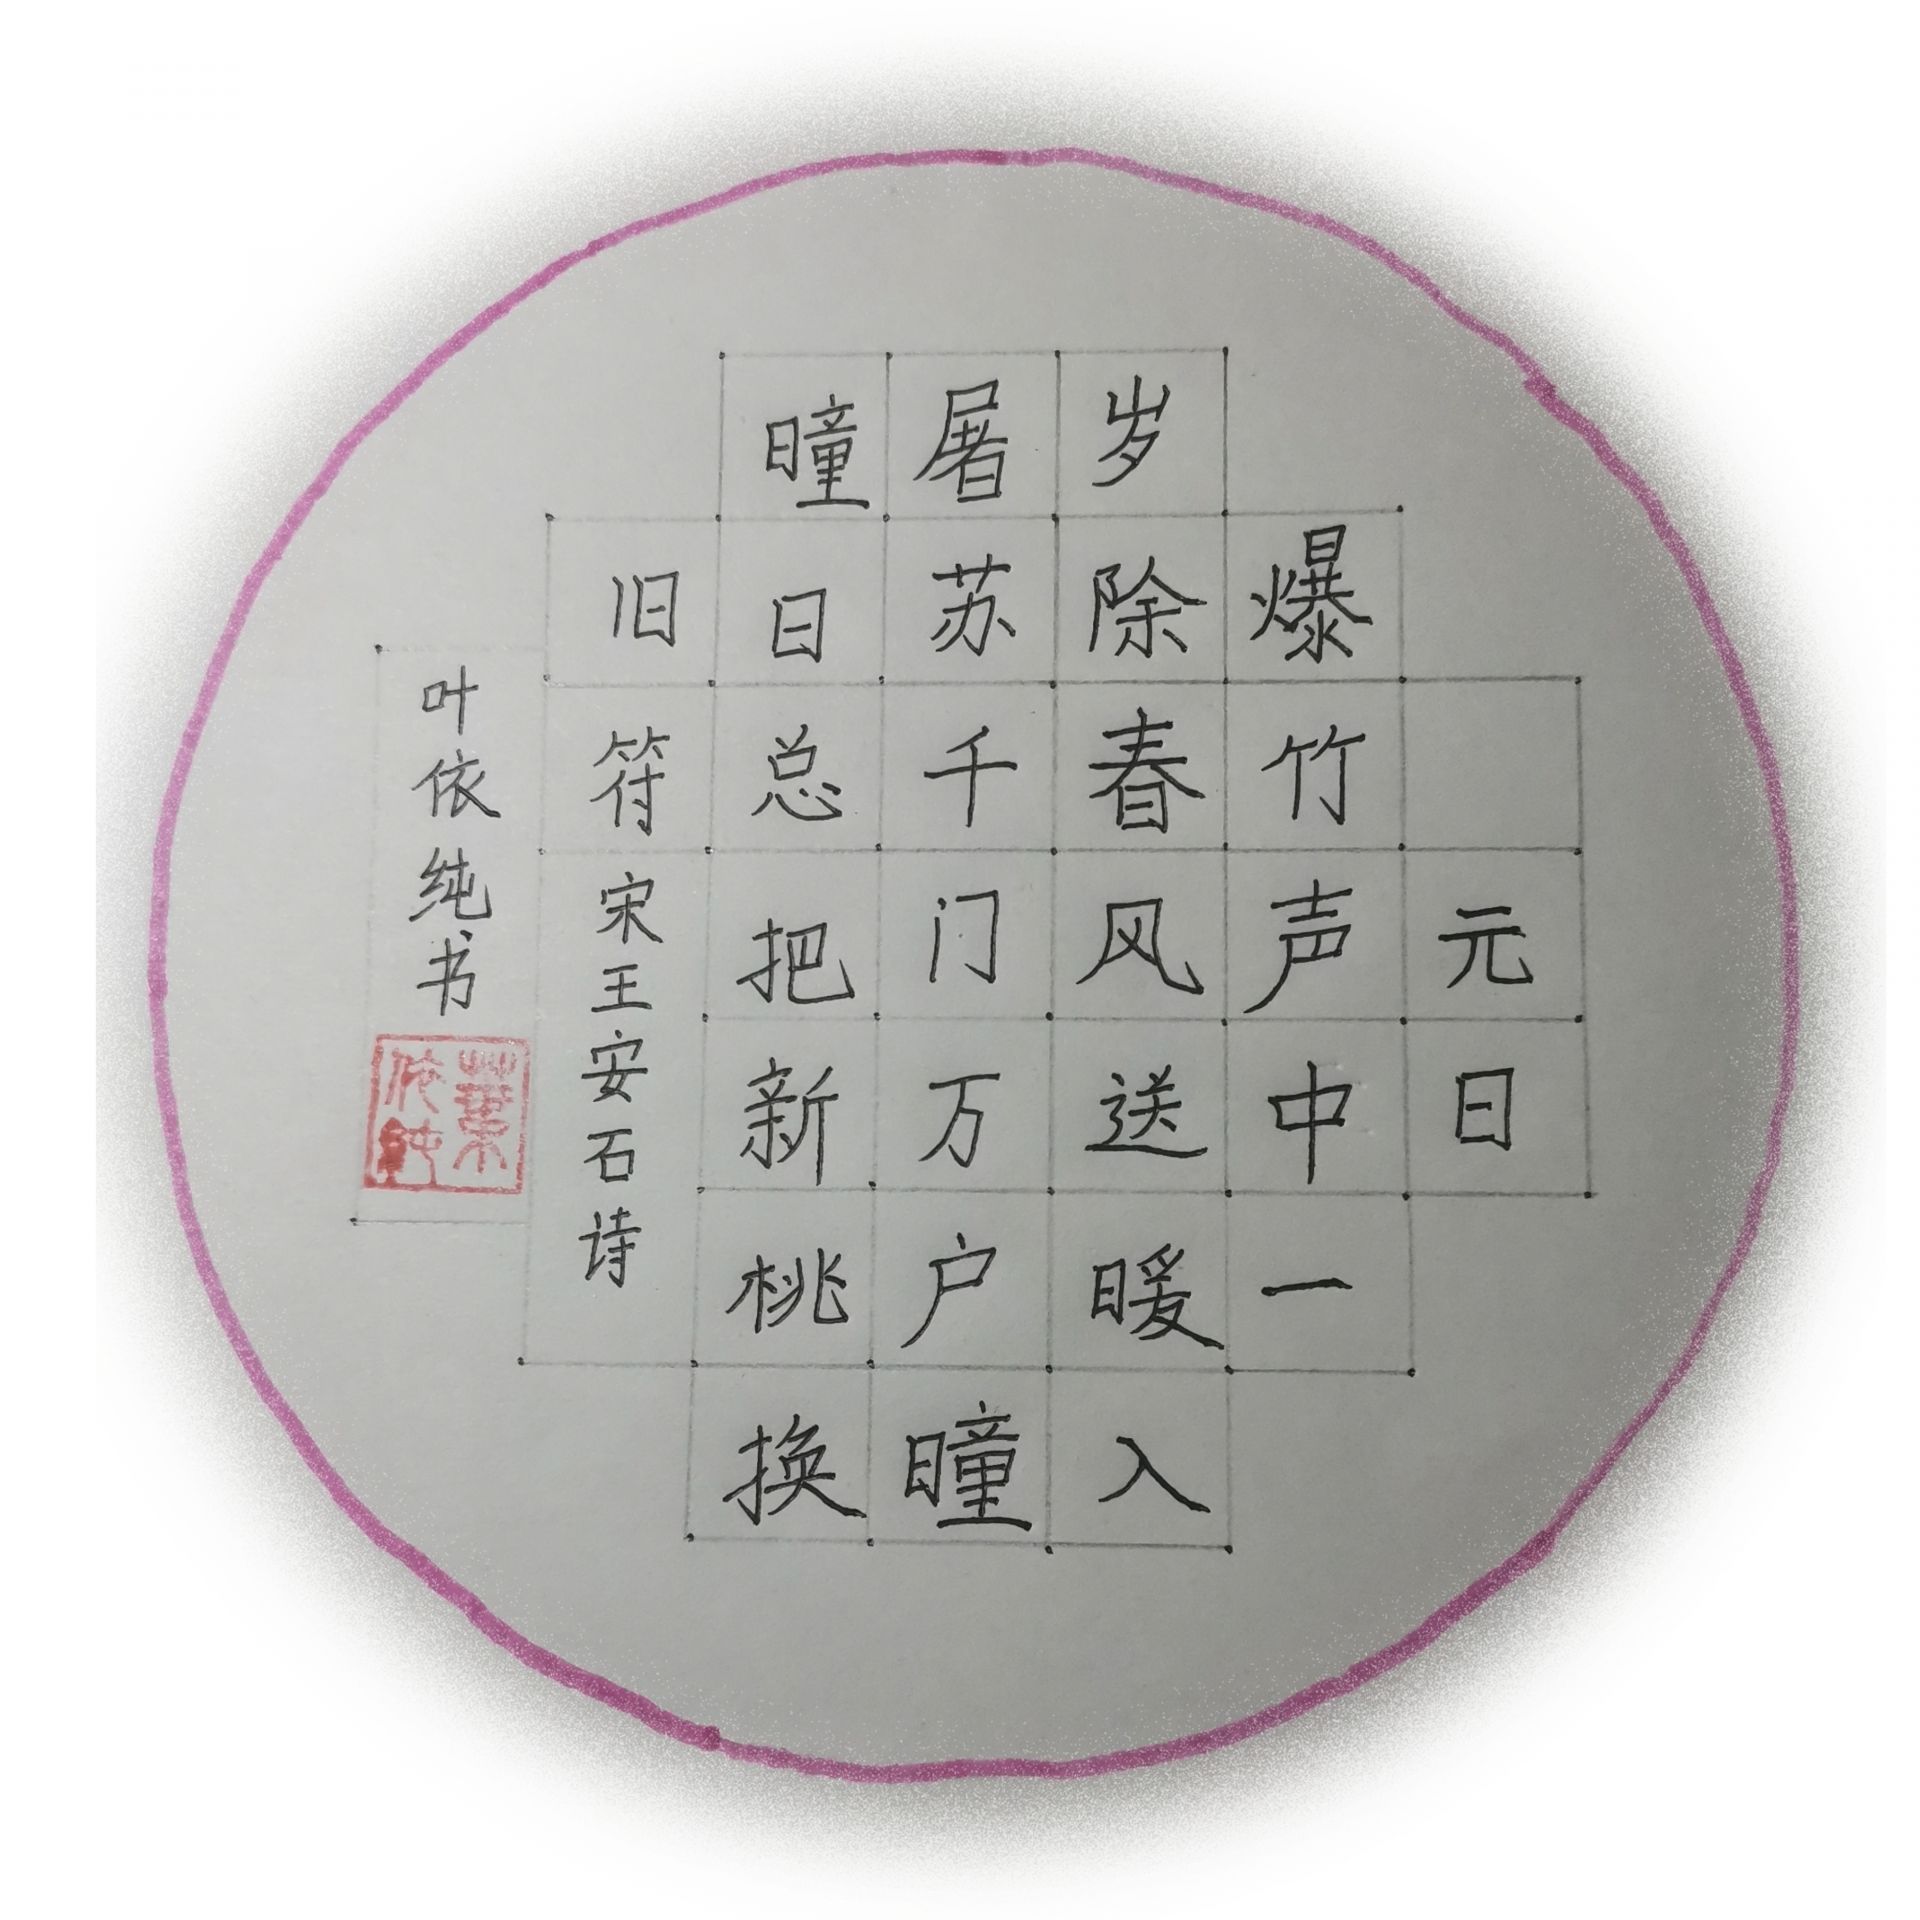 元日
爆竹声中一
岁除春风送暖入
屠苏千门万户曈
曈日总把新桃换
旧符 宋王安石诗
叶依纯书
葉依純